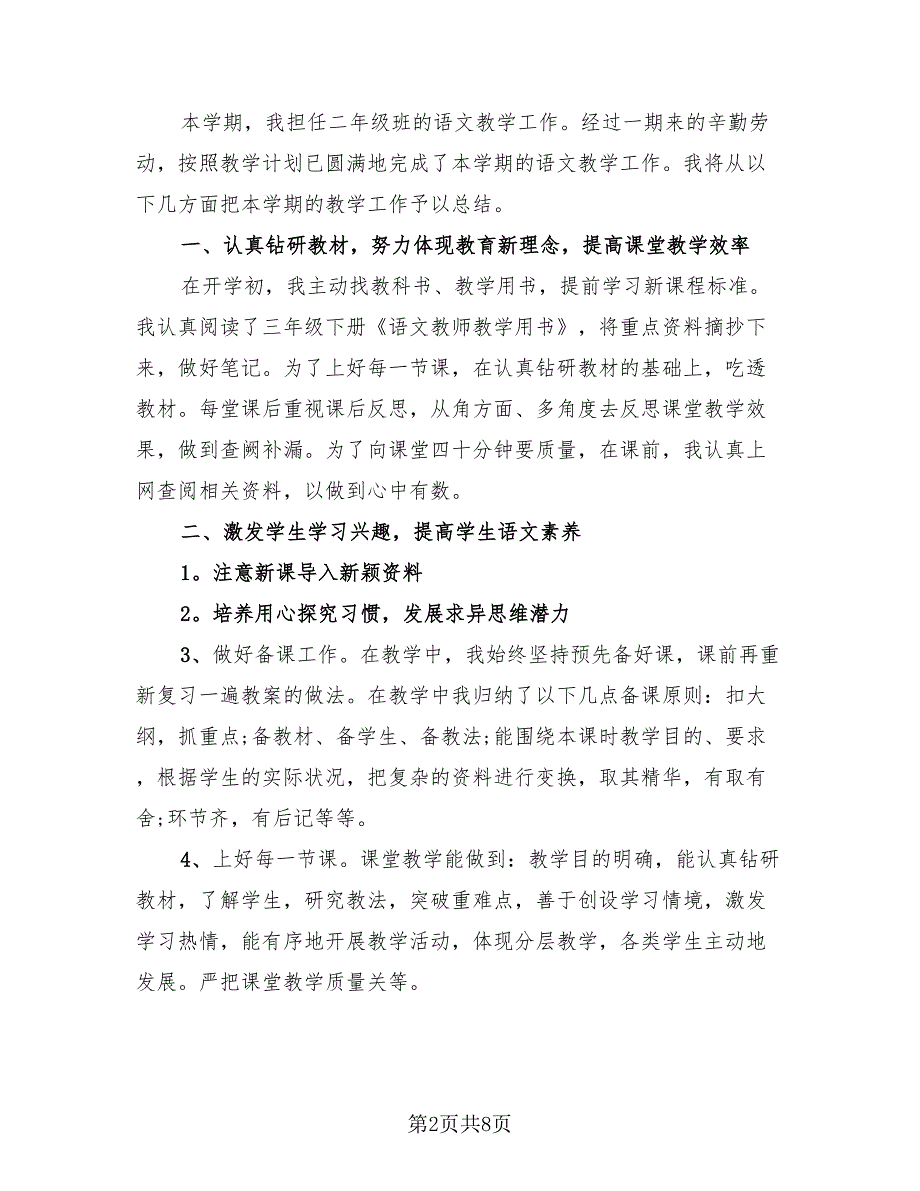 本学期，我担任二年级班的语文教学工作。经过一期来的辛勤劳
动，按照教学计划已圆满地完成了本学期的语文教学工作。我将从以
下几方面把本学期的教学工作予以总结。
一、认真钻研教材，努力体现教育新理念，提高课堂教学效率
在开学初，我主动找教科书、教学用书，提前学习新课程标准。
我认真阅读了三年级下册《语文教师教学用书》，将重点资料摘抄下
来，做好笔记。为了上好每一节课，在认真钻研教材的基础上，吃透
教材。每堂课后重视课后反思，从角方面、多角度去反思课堂教学效
果，做到查阙补漏。为了向课堂四十分钟要质量，在课前，我认真上
网查阅相关资料，以做到心中有数。
二、激发学生学习兴趣，提高学生语文素养
1。注意新课导入新颖资料
2。培养用心探究习惯，发展求异思维潜力
3、做好备课工作。在教学中，我始终坚持预先备好课，课前再重
新复习一遍教案的做法。在教学中我归纳了以下几点备课原则：扣大
纲，抓重点;备教材、备学生、备教法;能围绕本课时教学目的、要求
，根据学生的实际状况，把复杂的资料进行变换，取其精华，有取有
舍;环节齐，有后记等等。
4、上好每一节课。课堂教学能做到：教学目的明确，能认真钻研
教材，了解学生，研究教法，突破重难点，善于创设学习情境，激发
学习热情，能有序地开展教学活动，体现分层教学，各类学生主动地
发展。严把课堂教学质量关等。
第2页共8页